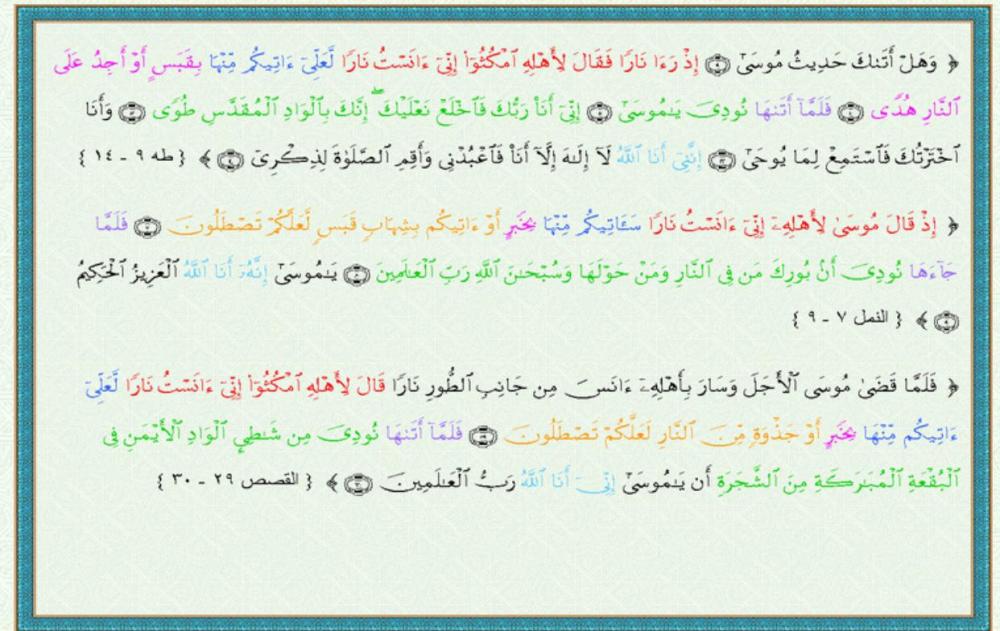 ﴿ وَهَلْ أَتَىٰكَ حَدِيثُ مُوسَىٰٓ ۝ إِذْ رَءَا نَارًا فَقَالَ لِأَهْلِهِ ٱمْكُثُوٓا۟ إِنِّىٓ ءَانَسْتُ نَارًا لَّعَلِّىٓ ءَاتِيكُم مِّنْهَا بِقَبَسٍ أَوْ أَجِدُ عَلَى
ٱلنَّارِ هُدًى ۝ فَلَمَّآ أَتَىٰهَا نُودِىَ يَـٰمُوسَىٰٓ ۝ إِنِّىٓ أَنَا۠ رَبُّكَ فَٱخْلَعْ نَعْلَيْكَ ۖ إِنَّكَ بِٱلْوَادِ ٱلْمُقَدَّسِ طُوًى ۝ وَأَنَا
ٱخْتَرْتُكَ فَٱسْتَمِعْ لِمَا يُوحَىٰٓ ۝ إِنَّنِىٓ أَنَا ٱللَّهُ لَآ إِلَـٰهَ إِلَّآ أَنَا۠ فَٱعْبُدْنِى وَأَقِمِ ٱلصَّلَوٰةَ لِذِكْرِىٓ ۝ ﴾ { طه ٩ - ١٤ }
﴿ إِذْ قَالَ مُوسَىٰ لِأَهْلِهِۦٓ إِنِّىٓ ءَانَسْتُ نَارًا سَـَٔاتِيكُم مِّنْهَا بِخَبَرٍ أَوْ ءَاتِيكُم بِشِهَابٍ قَبَسٍ لَّعَلَّكُمْ تَصْطَلُونَ ۝ فَلَمَّا
جَآءَهَا نُودِىَ أَنۢ بُورِكَ مَن فِى ٱلنَّارِ وَمَنْ حَوْلَهَا وَسُبْحَـٰنَ ٱللَّهِ رَبِّ ٱلْعَـٰلَمِينَ ۝ يَـٰمُوسَىٰٓ إِنَّهُۥٓ أَنَا ٱللَّهُ ٱلْعَزِيزُ ٱلْحَكِيمُ
۝ ﴾ { النمل ٧ - ٩ }
﴿ فَلَمَّا قَضَىٰ مُوسَى ٱلْأَجَلَ وَسَارَ بِأَهْلِهِۦٓ ءَانَسَ مِن جَانِبِ ٱلطُّورِ نَارًا قَالَ لِأَهْلِهِ ٱمْكُثُوٓا۟ إِنِّىٓ ءَانَسْتُ نَارًا لَّعَلِّىٓ
ءَاتِيكُم مِّنْهَا بِخَبَرٍ أَوْ جَذْوَةٍ مِّنَ ٱلنَّارِ لَعَلَّكُمْ تَصْطَلُونَ ۝ فَلَمَّآ أَتَىٰهَا نُودِىَ مِن شَـٰطِئِ ٱلْوَادِ ٱلْأَيْمَنِ فِى
ٱلْبُقْعَةِ ٱلْمُبَـٰرَكَةِ مِنَ ٱلشَّجَرَةِ أَن يَـٰمُوسَىٰٓ إِنِّىٓ أَنَا ٱللَّهُ رَبُّ ٱلْعَـٰلَمِينَ ۝ ﴾ { القصص ٢٩ - ٣٠ }